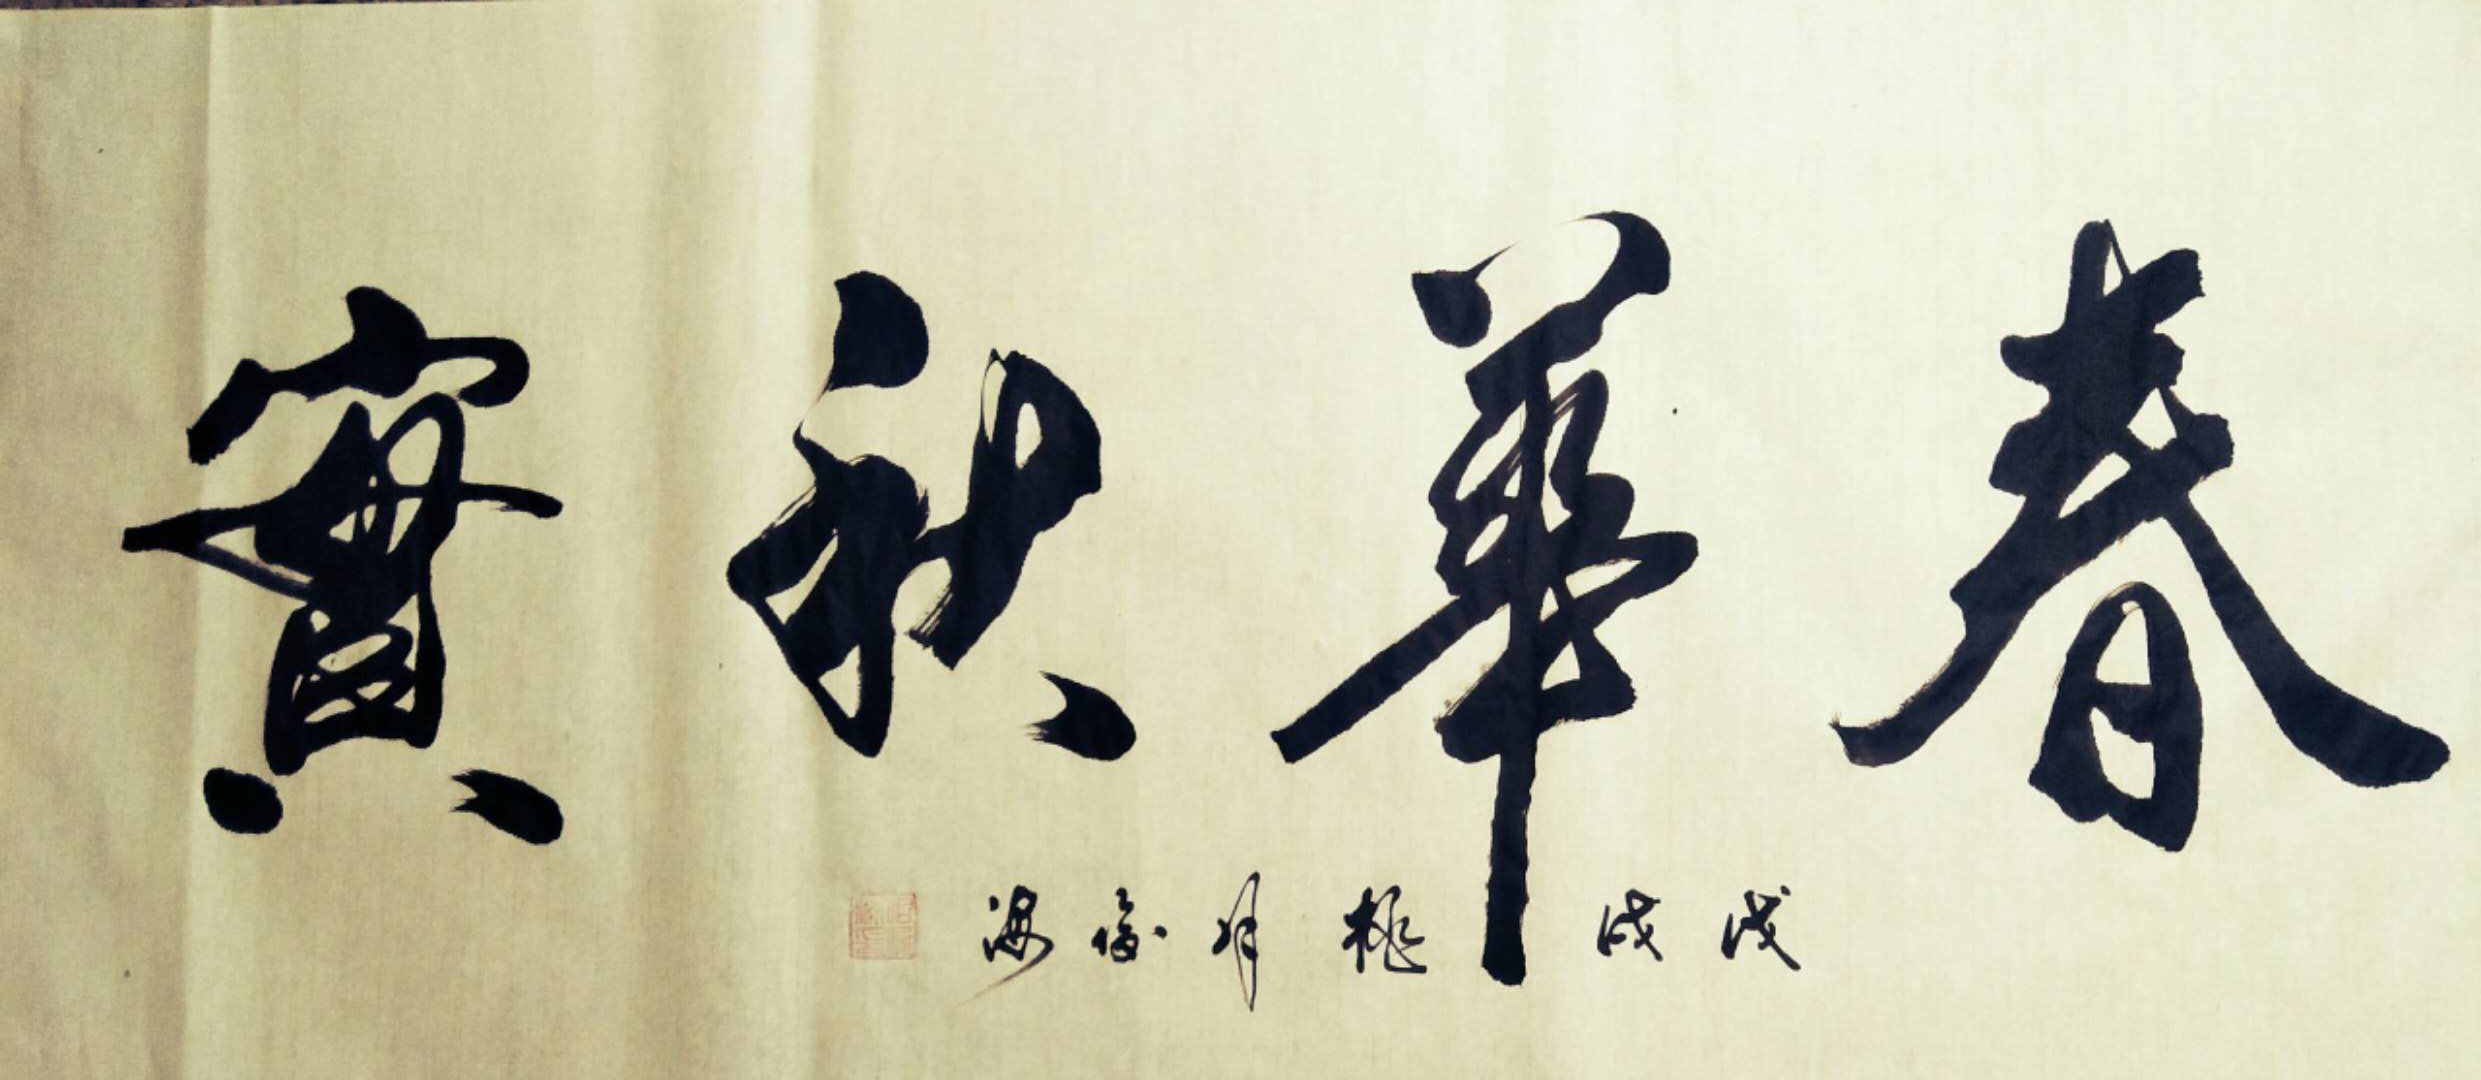 春華秋實
戊戌桃月俊海